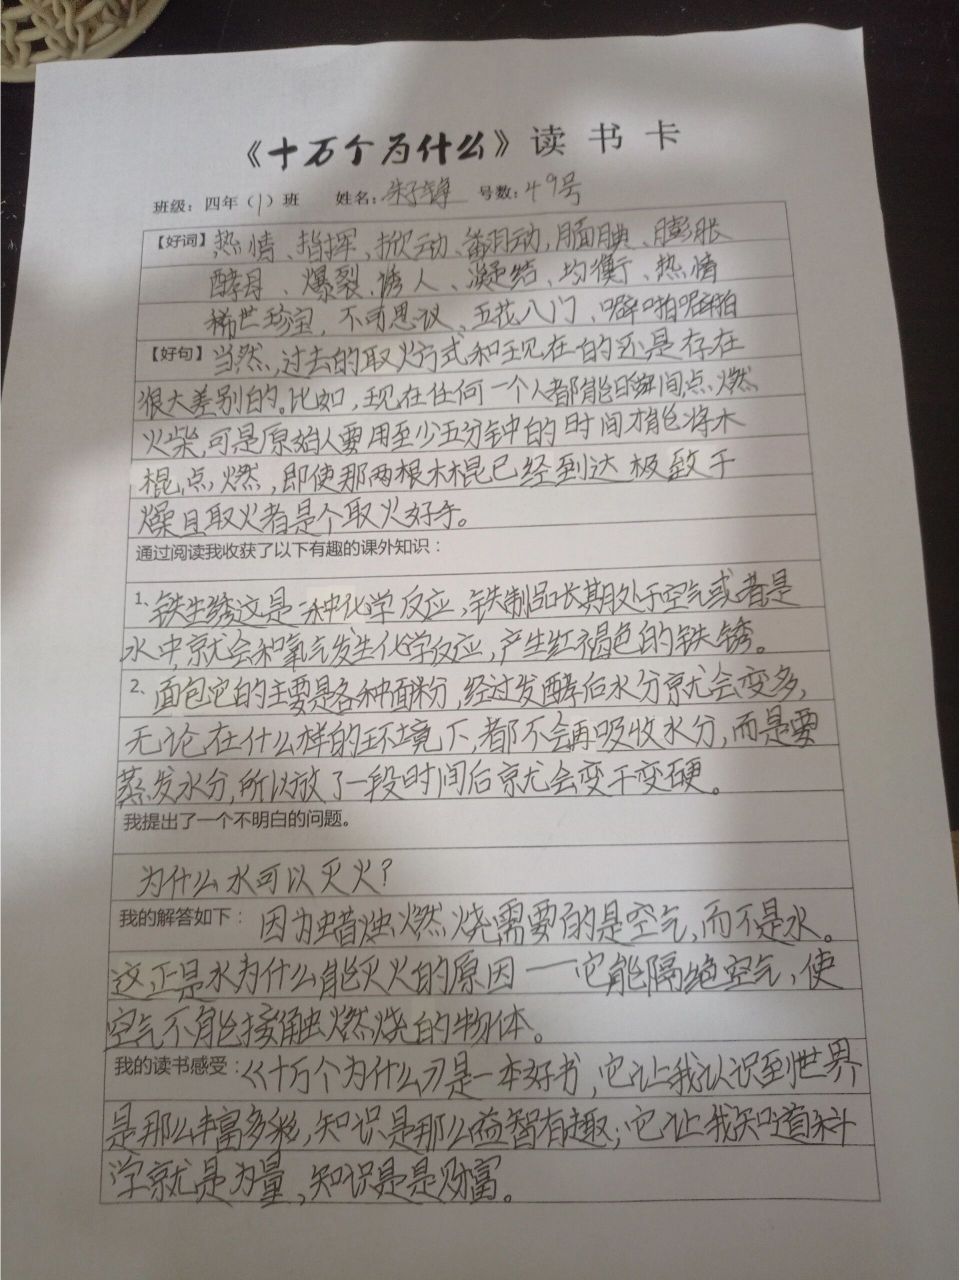 《十万个为什么》读书卡
班级：四年（1）班 姓名：朱 号数：49号
【好词】热情、指挥、掀动、翕动、腼腆、膨胀
酵母、爆裂、诱人、凝结、均衡、热情
稀世珍宝、不可思议、五花八门、噼啪噼啪
【好句】当然，过去的取火方式和现在的还是存在
很大差别的。比如，现在任何一个人都能瞬间点燃
火柴，可是原始人要用至少五分钟的时间才能将木
棍点燃，即使那两根木棍已经到达极致干
燥且取火者是个取火好手。
通过阅读我收获了以下有趣的课外知识：
1、铁生锈这是一种化学反应，铁制品长期处于空气或者是
水中就会和氧气发生化学反应，产生红褐色的铁锈。
2、面包它的主要是各种面粉，经过发酵后水分就会变多，
无论在什么样的环境下，都不会再吸收水分，而是要
蒸发水分，所以放了一段时间后就会变干变硬。
我提出了一个不明白的问题。
为什么水可以灭火？
我的解答如下：因为蜡烛燃烧需要的是空气，而不是水。
这正是水为什么能灭火的原因——它能隔绝空气，使
空气不能接触燃烧的物体。
我的读书感受：《十万个为什么》是一本好书，它让我认识到世界
是那么丰富多彩，知识是那么益智有趣；它让我知道科
学就是力量，知识是是财富。